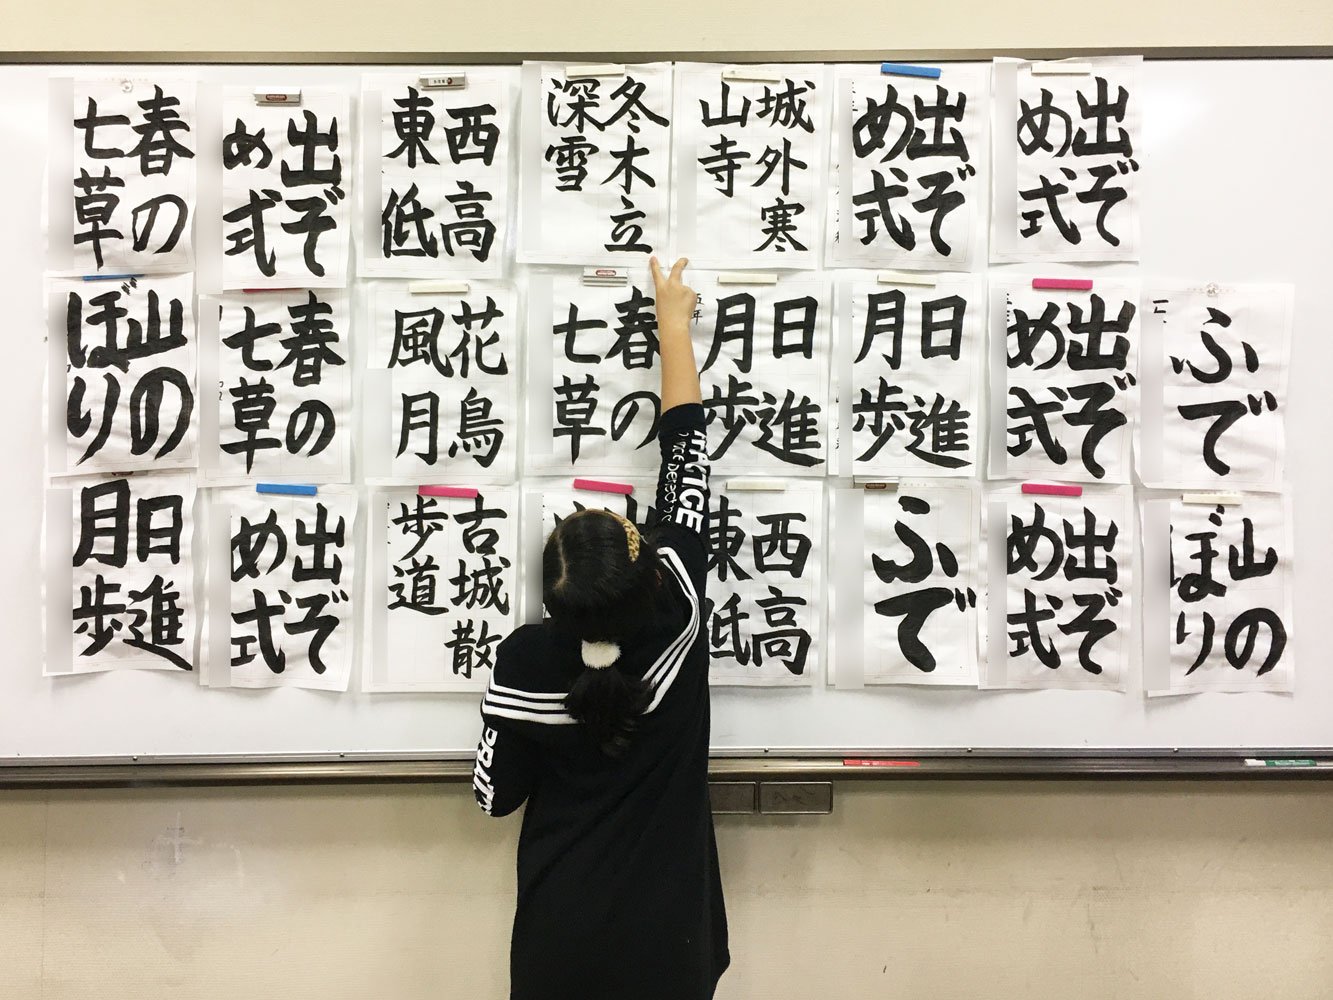 春の
七草
出ぞ
め式
西高
東低
冬木立
深雪
城外寒
山寺
出ぞ
め式
出ぞ
め式
山の
ぼり
春の
七草
花鳥
風月
春の
七草
日進
月歩
五年
日進
月歩
出ぞ
め式
ふで
日進
月歩
出ぞ
め式
古城散
歩道
西高
東低
ふで
出ぞ
め式
山の
ぼり